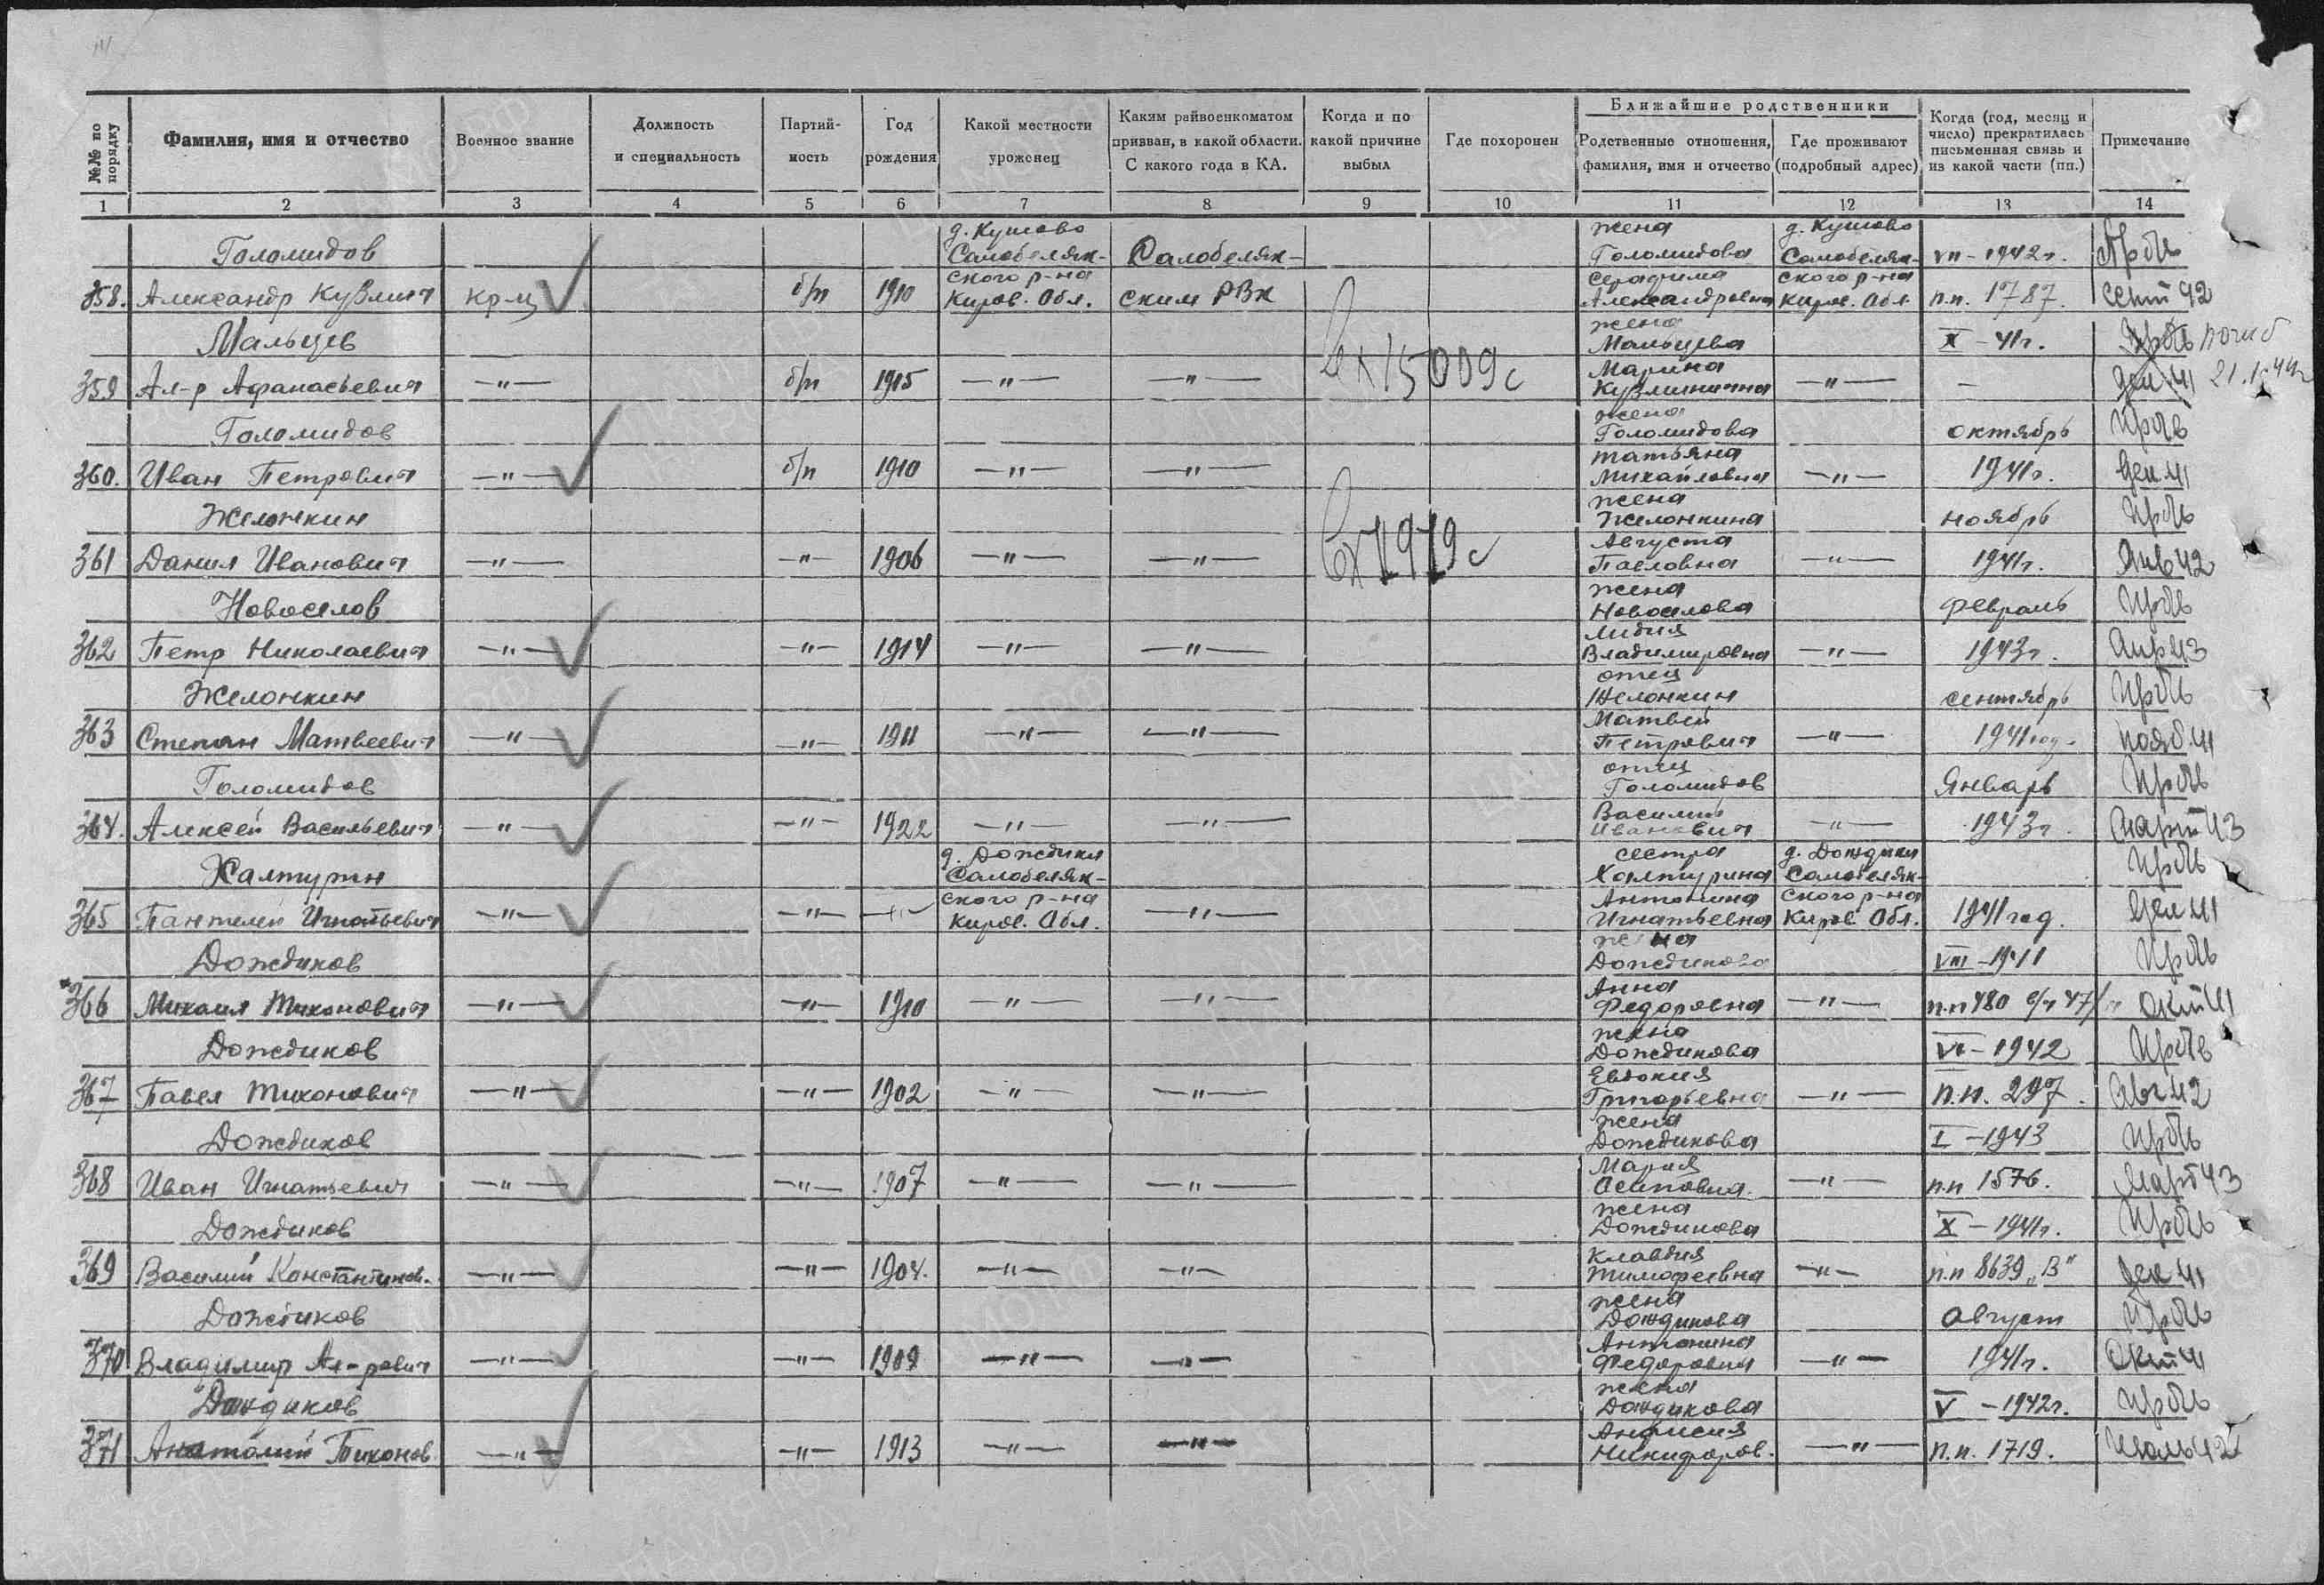 №№ по порядку
Фамилия, имя и отчество
Военное звание
Должность и специальность
Партий-ность
Год рождения
Какой местности уроженец
Каким райвоенкоматом призван, в какой области. С какого года в КА.
Когда и по какой причине выбыл
Где похоронен
Ближайшие родственники
Родственные отношения, фамилия, имя и отчество
Где проживают (подробный адрес)
Когда (год, месяц и число) прекратилась письменная связь и из какой части (пп.)
Примечание
1 2 3 4 5 6 7 8 9 10 11 12 13 14
д. Кушово жена д. Кушово
Голомидов Салобеляк- Салобеляк- Голомидова Салобеляк- VII – 1942г. Пр бв
ского р-на Серафима ского р-на
358. Александр Кузмич кр-ц б/п 1910 Киров. Обл. ским РВК Александровна Киров. Обл. п.п. 1787. сент 42
жена
Мальцев Мальцева X – 41г. Пр бв погиб
Марина
359 Ал-р Афанасьевич —"— б/п 1915 —"— —"— Вх 15009с Кузминична —"— – дек 41 21.1.44г
жена
Голомидов Голомидова октябрь Пр бв
Татьяна
360. Иван Петрович —"— б/п 1910 —"— —"— Михайловна —"— 1941г. дек 41
жена
Желонкин Желонкина ноябрь Пр бв
Августа
361 Данил Иванович —"— —"— 1906 —"— —"— Павловна —"— 1941г. Янв 42
жена
Новоселов Новоселова февраль Пр бв
Лидия
362 Петр Николаевич —"— —"— 1914 —"— —"— Владимировна —"— 1943г. Апр 43
отец
Желонкин Желонкин сентябрь Пр бв
Матвей
363 Степан Матвеевич —"— —"— 1911 —"— —"— Петрович —"— 1941год. нояб. 41
отец
Голомидов Голомидов Январь Пр бв
Василий
364. Алексей Васильевич —"— —"— 1922 —"— —"— Иванович —"— 1943г. март 43
д. Дождики сестра д. Дождики
Халтурин Салобеляк- Халтурина Салобеляк- Пр бв
ского р-на Антонина ского р-на
365 Пантелей Игнатьевич —"— —"— —"— Киров. Обл. —"— Игнатьевна Киров. Обл. 1941год. дек 41
жена
Дождиков Дождикова VIII – 1941 Пр бв
Анна
366 Михаил Тихонович —"— —"— 1910 —"— —"— Федоровна —"— п.п 480 окт 41
жена
Дождиков Дождикова VI – 1942 Пр бв
Евдокия
367 Павел Тихонович —"— —"— 1902 —"— —"— Григорьевна —"— п.п. 297. Авг 42
жена
Дождиков Дождикова I – 1943 Пр бв
Мария
368 Иван Игнатьевич —"— —"— 1907 —"— —"— Осиповна. —"— п.п 1576. Март 43
жена
Дождиков Дождикова X – 1941г. Пр бв
Клавдия
369 Василий Константинов. —"— —"— 1904. —"— —"— Тимофеевна —"— п.п 8639 „В" дек 41
жена
Дождиков Дождикова август Пр бв
Антонина
370 Владимир Ал-рович —"— —"— 1909 —"— —"— Федоровна —"— 1941г. Окт 41
жена
Дождиков Дождикова V – 1942г. Пр бв
Анфисия
371 Анатолий Тихонов. —"— —"— 1913 —"— —"— Никифоров. —"— п.п. 1719. Июль 42